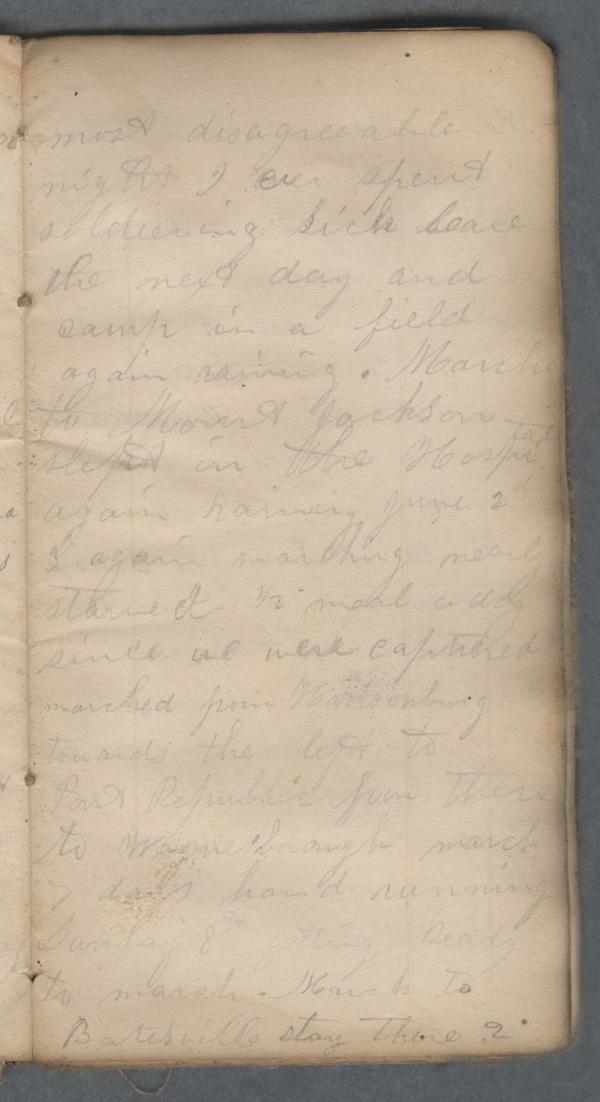 most disagreeable
night I ever spent
soldiering sick leave
the next day and
camp in a field
again raining. March
to Mount Jackson
slept in the Hospital
again raining June 2d
I again marching nearly
starved 1/2 meal a day
since we were captured
marched from Harrisonburg
towards the left to
Port Republic from there
to Waynesborough march
7 days hand running
Sunday 8th getting ready
to march - March to
Batesville stay there 2